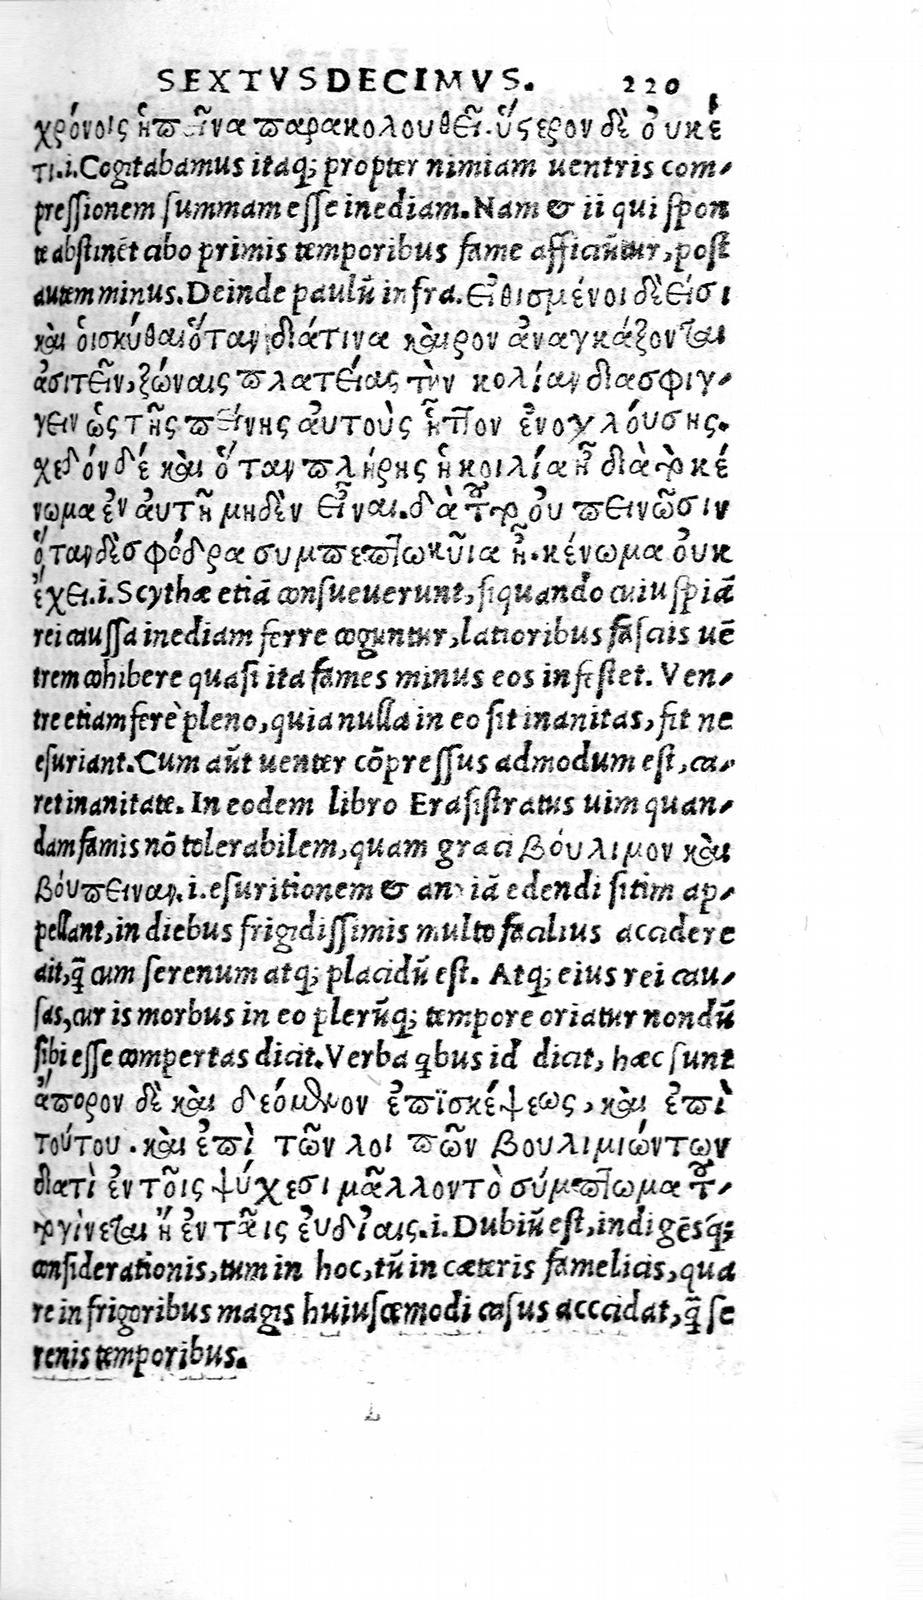 SEXTVSDECIMVS. 220
χρόνοις ἡ πεῖνα παρακολουθεῖ. ὕστερον δὲ ὀυκέ
τι. i. Cogitabamus itaq; propter nimiam uentris com-
pressionem summam esse inediam. Nam & ii qui spon
te abstinēt cibo primis temporibus fame afficiūtur, post
autem minus. Deinde paulū infra. Εἰθισμένοι δὲ εἰσι
καὶ ὁι σκύθαι ὅταν διά τινα καὶρον ἀναγκάζονται
ἀσιτεῖν, ζώναις πλατείας τὴν κολίαν διασφιγ-
γειν ὡς τῆς πείνης ἀυτοὺς ἧττον ἐνοχλούσης.
χεδόν δέ καὶ ὅταν πλήρης ἡ κοιλία ᾖ διὰ τὸ κέ
νωμα ἐν ἀυτῆ μηδὲν εἶναι. διὰ τοῦτο ου πεινῶσιν
ὅταν δὲ σφόδρα συμπεπτωκῦια ᾖ. κένωμα ὀυκ
ἔχει. i. Scythæ etiā consueuerunt, siquando cuiuspiā
rei caussa inediam ferre coguntur, latioribus fasciis uē
trem cohibere quasi ita fames minus eos infestet. Ven-
tre etiam ferè pleno, quia nulla in eo sit inanitas, fit ne
esuriant. Cum aūt uenter cōpressus admodum est, ca-
ret inanitate. In eodem libro Erasistratus uim quan-
dam famis nō tolerabilem, quam græci βόυλιμον καὶ
βόυπειναν. i. esuritionem & edendi sitim ap-
pellant, in diebus frigidissimis multo facilius accidere
ait, q̄ cum serenum atq; placidū est. Atq; eius rei cau-
sas, cur is morbus in eo plerūq; tempore oriatur nondū
sibi esse compertas dicit. Verba qbus id dicit, hæc sunt
ἄπορον δὲ καὶ δεόμενον ἐπϊσκέψεως, καὶ ἐπὶ
τούτου. καὶ ἐπὶ τῶν λοι πῶν βουλιμιώντων
διατὶ ἐν τοῖς ψύχεσι μᾶλλον τὸ σύμπτωμα τοῦ-
το γίνεται ἢ ἐν ταῖς ἐυδίαις. i. Dubiū est, indigēsq;
considerationis, tum in hoc, tū in cæteris famelicis, qua
re in frigoribus magis huiuscemodi casus acccidat, q̄ se
renis temporibus.